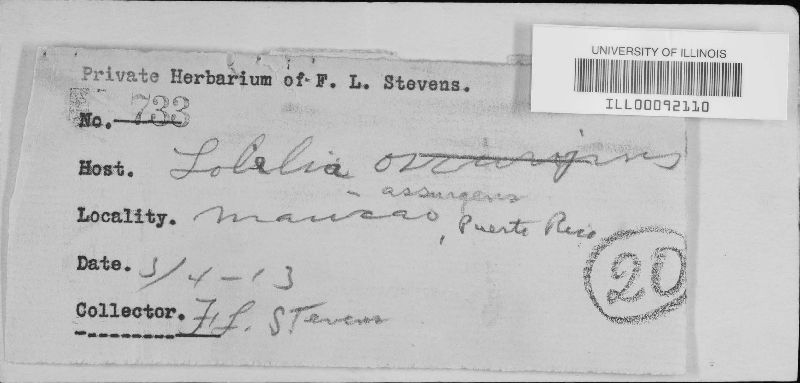 UNIVERSITY OF ILLINOIS
ILL00092110
Private Herbarium of F. L. Stevens.
No. 733
Host. Lobelia
assurgens
Locality. Maunabo, Puerto Rico
Date. 3/4-13
Collector. F. L. Stevens
20